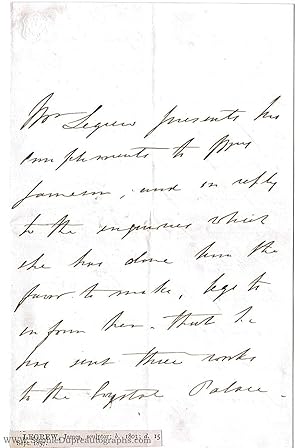 Mr Legrew presents his
compliments to Mrs
Jameson, and in reply
to the enquiries which
she has done him the
favor to make, begs to
inform her that he
has sent three works
to the Crystal Palace
LEGREW, James, sculptor; b. 1803; d. 15
www.SophieDupreAutographs.com